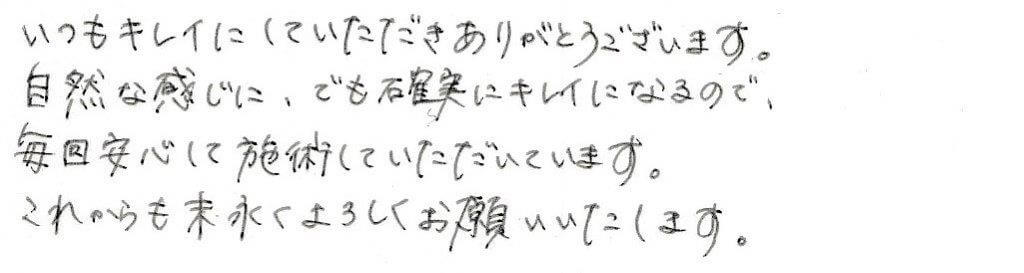 いつもキレイにしていただきありがとうございます。
自然な感じに、でも確実にキレイになるので、
毎回安心して施術していただいています。
これからも末永くよろしくお願いいたします。